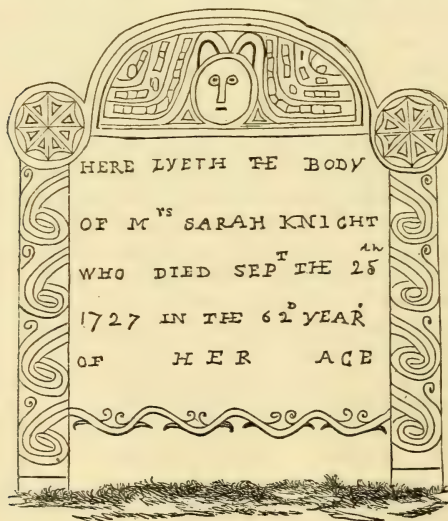 HERE LYETH THE BODY
OF Mrs SARAH KNIGHT
WHO DIED SEPT THE 25th
1727 IN THE 62D YEAR
OF HER AGE